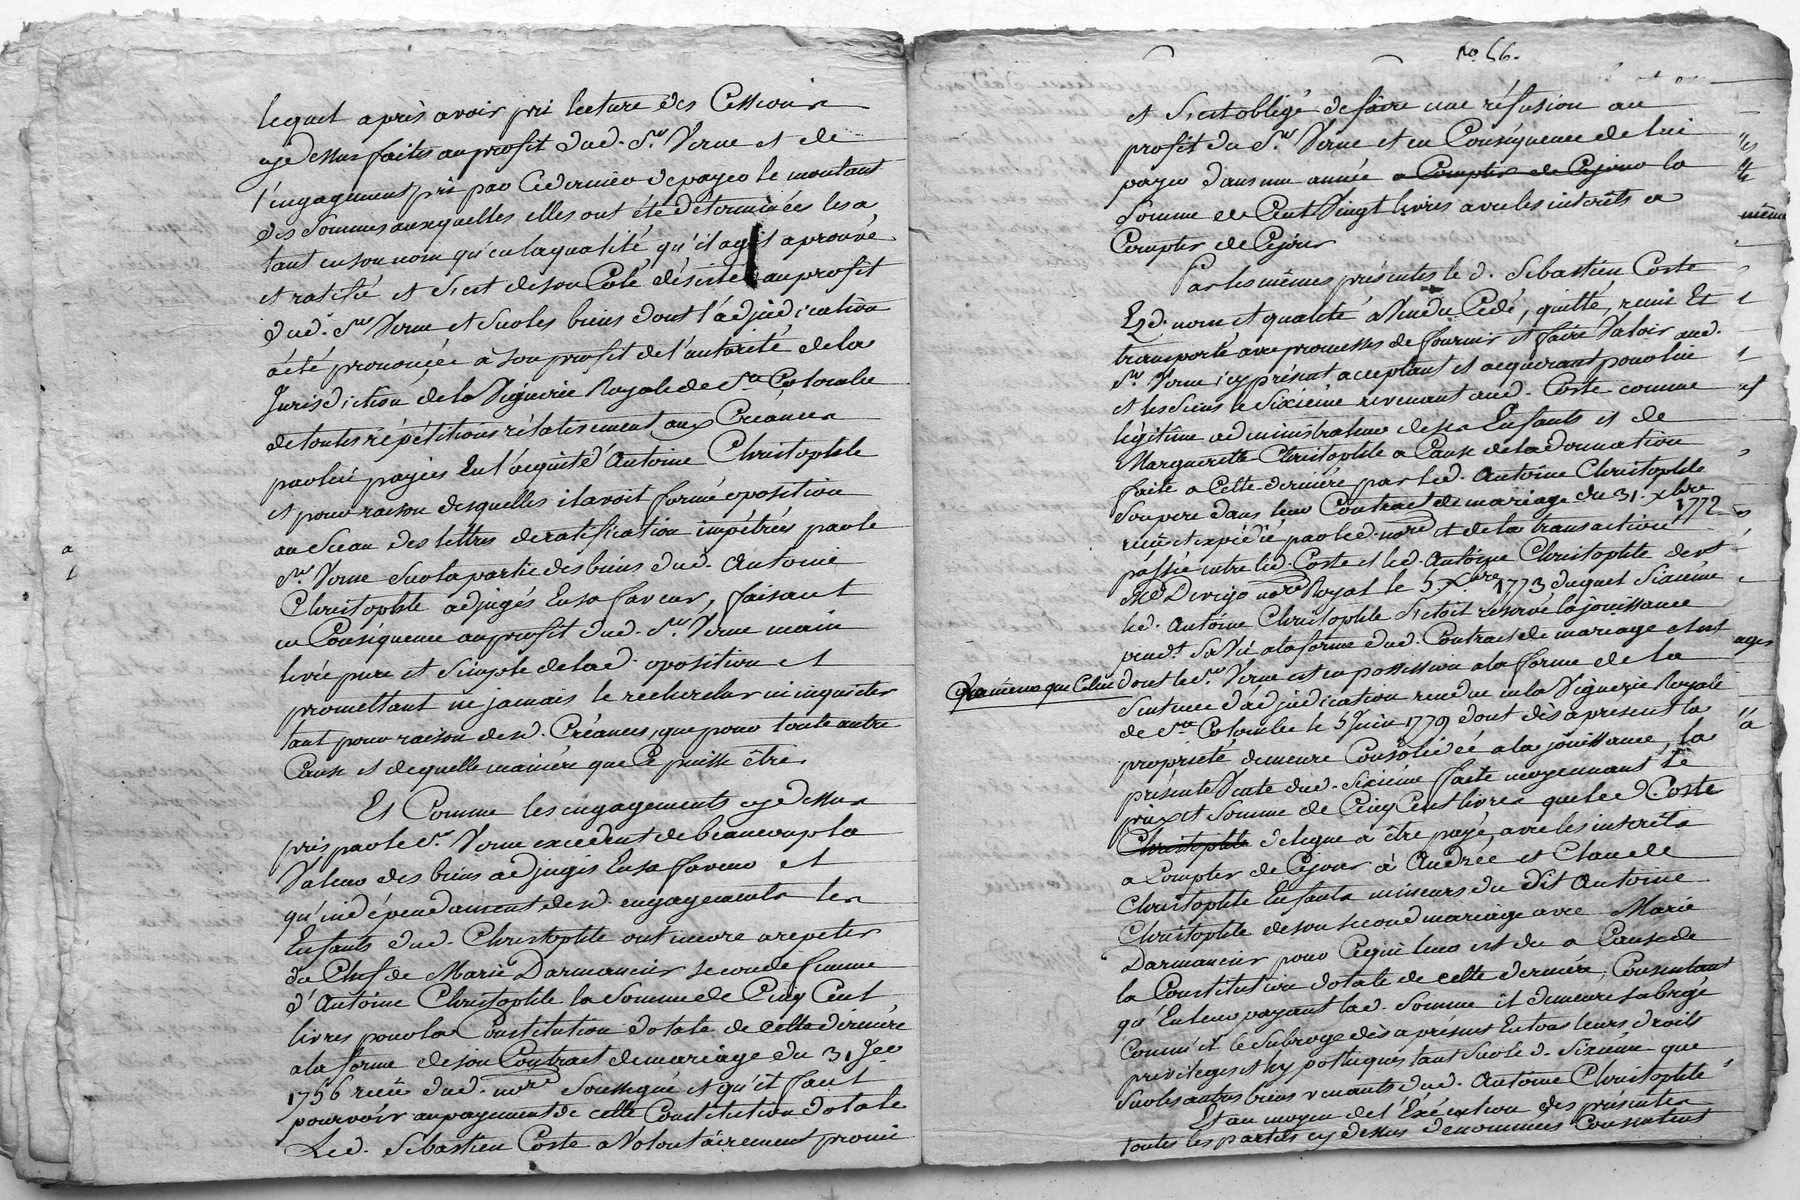 lequel après avoir pri lecture des Cessions
cydessus faites au profit dud. Sr. Verne et de
l'engagement pri par Cedernier depayer le montant
des Sommes auxquelles elles ont été déterminées les a
tant en son nom qu'en laqualité qu'il agit aprouvé
et ratifié et S'est deson Coté désisté au profit
dud. Sr. Verne et Surles biens dont l'adjudication
aété prononcée à Son profit de l'autorité dela
Jurisdiction dela Viguerie Royale de Ste Colombe
detoutes répétitions rélativement aux Créances
parlui payées En l'acquité d'Antoine Christophle
et pour raison desquelles ilavoit formé oposition
au Sceau des lettres deratification impétrées parle
Sr. Verne Surla partie des biens dud. Antoine
Christophle adjugés Ensa faveur, faisant
en Conséquence au profit dud. Sr. Verne main
levée pure et Simple delad. oposition et
promettant ne jamais le rechercher ni inquieter
tant pour raison desd. Créances, que pour toute autre
Cause et dequelle manière que Ce puisse être.
Et Comme les engagements cydessus
pris parle Sr. Verne excedent de beaucoup la
Valeur des biens adjugés Ensa faveur et
qu'indépendament desd. engagements les
Enfants dud. Christophle ont encore arepeter
du Chef de Marie Darmancier seconde femme
d'Antoine Christophle la Somme de Cinq Cent
livres pour la Constitution dotale de cette dernière
ala forme deson Contract demariage du 31 Jer
1756 reçu dud. nore Soussigné et qu'il faut
pourvoir aupayement de cette Constitution dotale
Led. Sebastien Coste a Volontairement promi
No. 66.
et S'est obligé defaire une réfusion au
profit du Sr. Verne et en Conséquence de lui
payer dans une année a Compter de Cejour la
Somme de Cent Vingt livres avec les intérêts a
Compter de Cejour
Par les mêmes présentes le d. Sebastien Coste
Esd. nom et qualité aVendu Cedé, quitté, remi Et
transporté avec promesses de fournir et faire Valoir aud.
Sr. Verne icy présent acceptant et acquerant pour lui
et les Siens le Sixième revenant aud. Coste comme
légitime administrateur de ses Enfants et de
Marguerite Christophle a Cause de la donnation
faite a Cette dernière par led. Antoine Christophle
Sonpere dans leur Contract de mariage du 31. xbre 1772
reçu et expédié par led. nore et de la transaction
passée entre led. Coste et led. Antoine Christophle devt
Me Devigo nore Royal le 5 xbre 1773 duquel Sixième
led. Antoine Christophle S'étoit reservé la jouissance
pendt. Sa Vie ala forme dud. Contract de mariage et est
Quamême que Celui dont le Sr. Verne est en possession ala forme de la
Sentence d'adjudication rendue en la Viguerie Royale
de Ste Colombe le 5 Juin 1779 dont dès apresent la
propriété demeure Consolidée a la jouissance, la
présente Vente dud. Sixième faite moyennant le
prix et Somme de Cinq Cent livres que led Coste
Christophle délégue a être payé, avec les intérêts
a compter de Cejour à Andrée et Claude
Christophle Enfants mineurs du dit Antoine
Christophle deson second mariage avec Marie
Darmancier pour Cequi leur est du a Cause de
la Constitution dotale de cette dernière, Consentant
qu'En leur payant lad. Somme il demeure Subrogé
Comm' il le Subroge dès aprésent En tous leurs droits
privileges et hypothèques tant Surle d. Sixième que
Surles autres biens venants dud. Antoine Christophle
Et au moyen de l'Exécution des présentes
toutes les parties cy dessus denommées Consentent